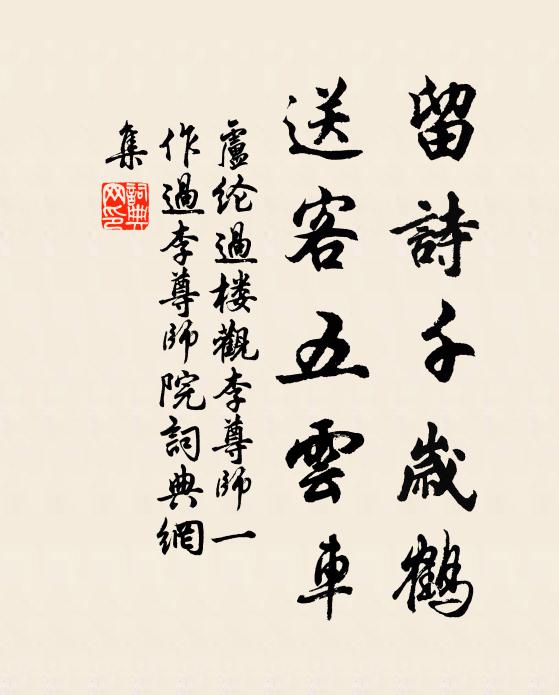 留詩千歲鶴
送客五雲車
盧纶過楼觀李尊師一
作過李尊師院詞典網
集
詞典
网印